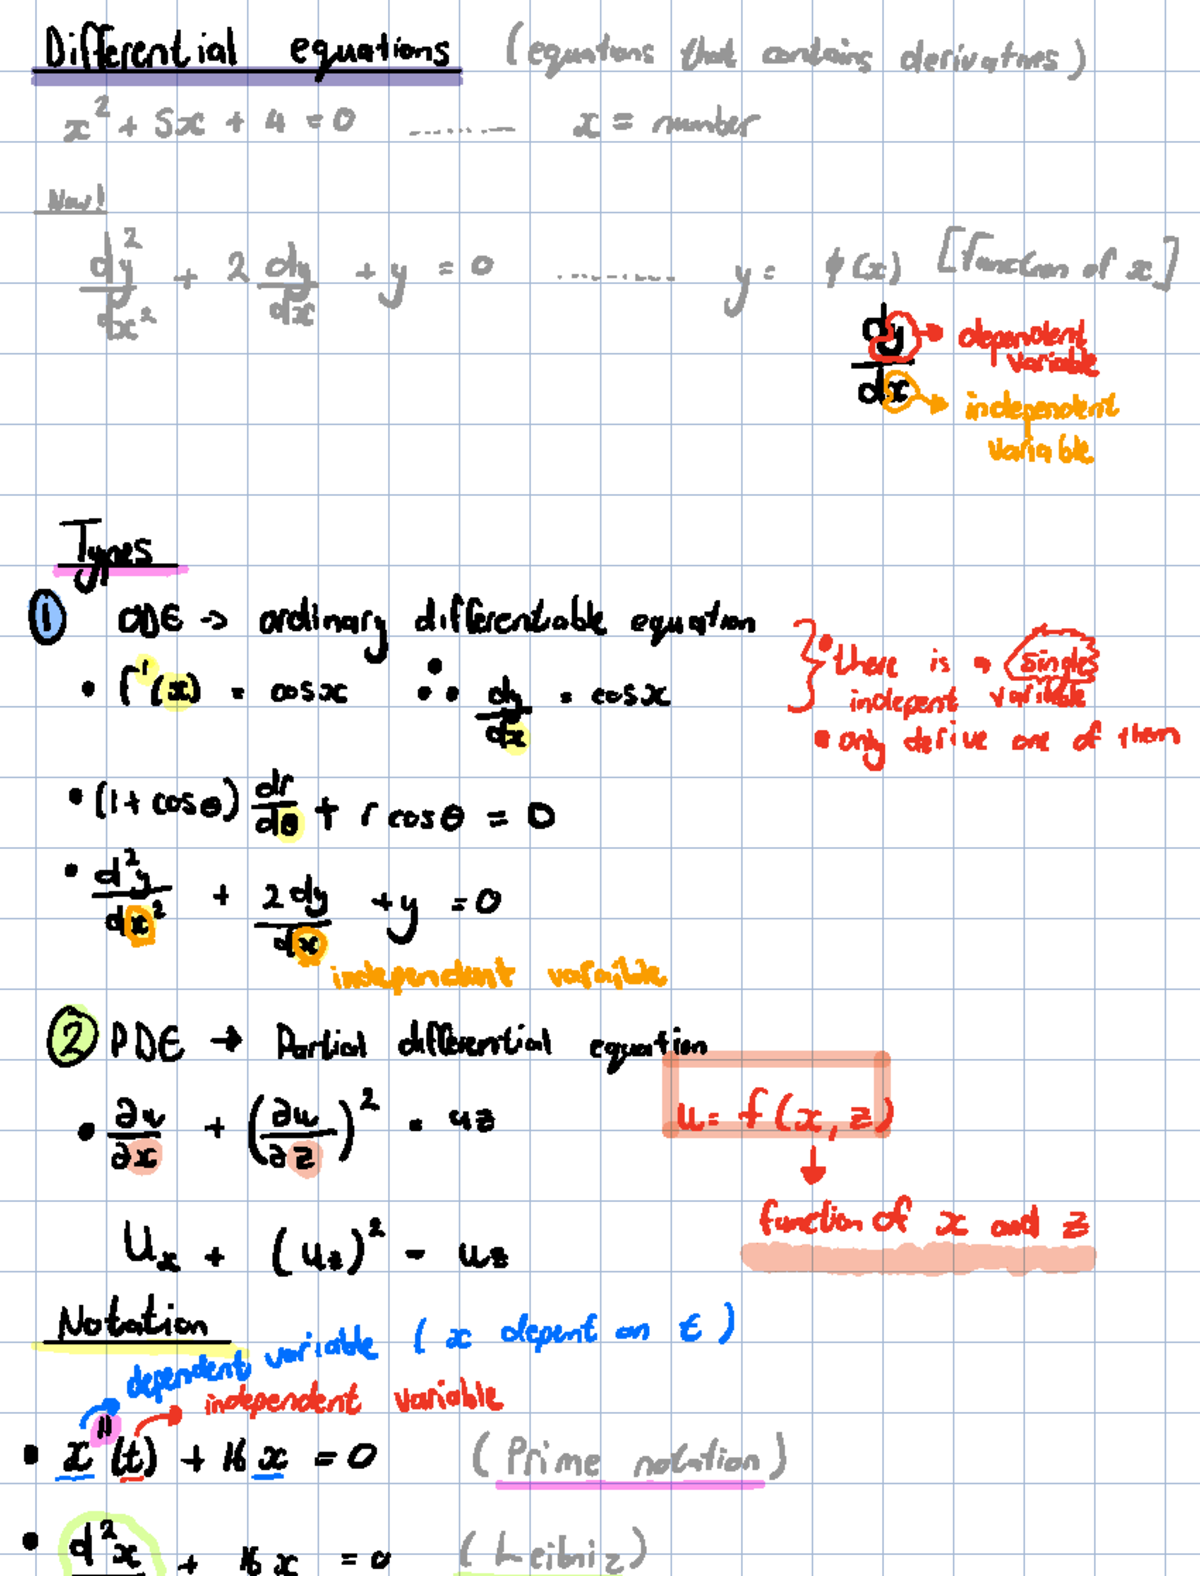 Differential equations (equations that contains derivatives)
x² + 5x + 4 = 0 ........ x = number
Now!
d²y/dx² + 2 dy/dx + y = 0 ........ y = φ(x) [function of x]
dy/dx
dependent
variable
independent
variable
Types
① ODE → ordinary differentiable equation
• f'(x) = cosx ∴ dy/dx = cosx
} • there is a single
indepent variable
• only derive one of them
• (1 + cosθ) dr/dθ + r cosθ = 0
• d²y/dx² + 2dy/dx + y = 0
independent varaible
② PDE → Partial differential equation
• ∂u/∂x + (∂u/∂z)² = uz
u = f(x, z)
↓
function of x and z
Uₓ + (u_z)² = uz
Notation
dependent variable (x depent on t)
independent variable
• x''(t) + 16x = 0 (Prime notation)
• d²x + 16x = 0 (Leibniz)